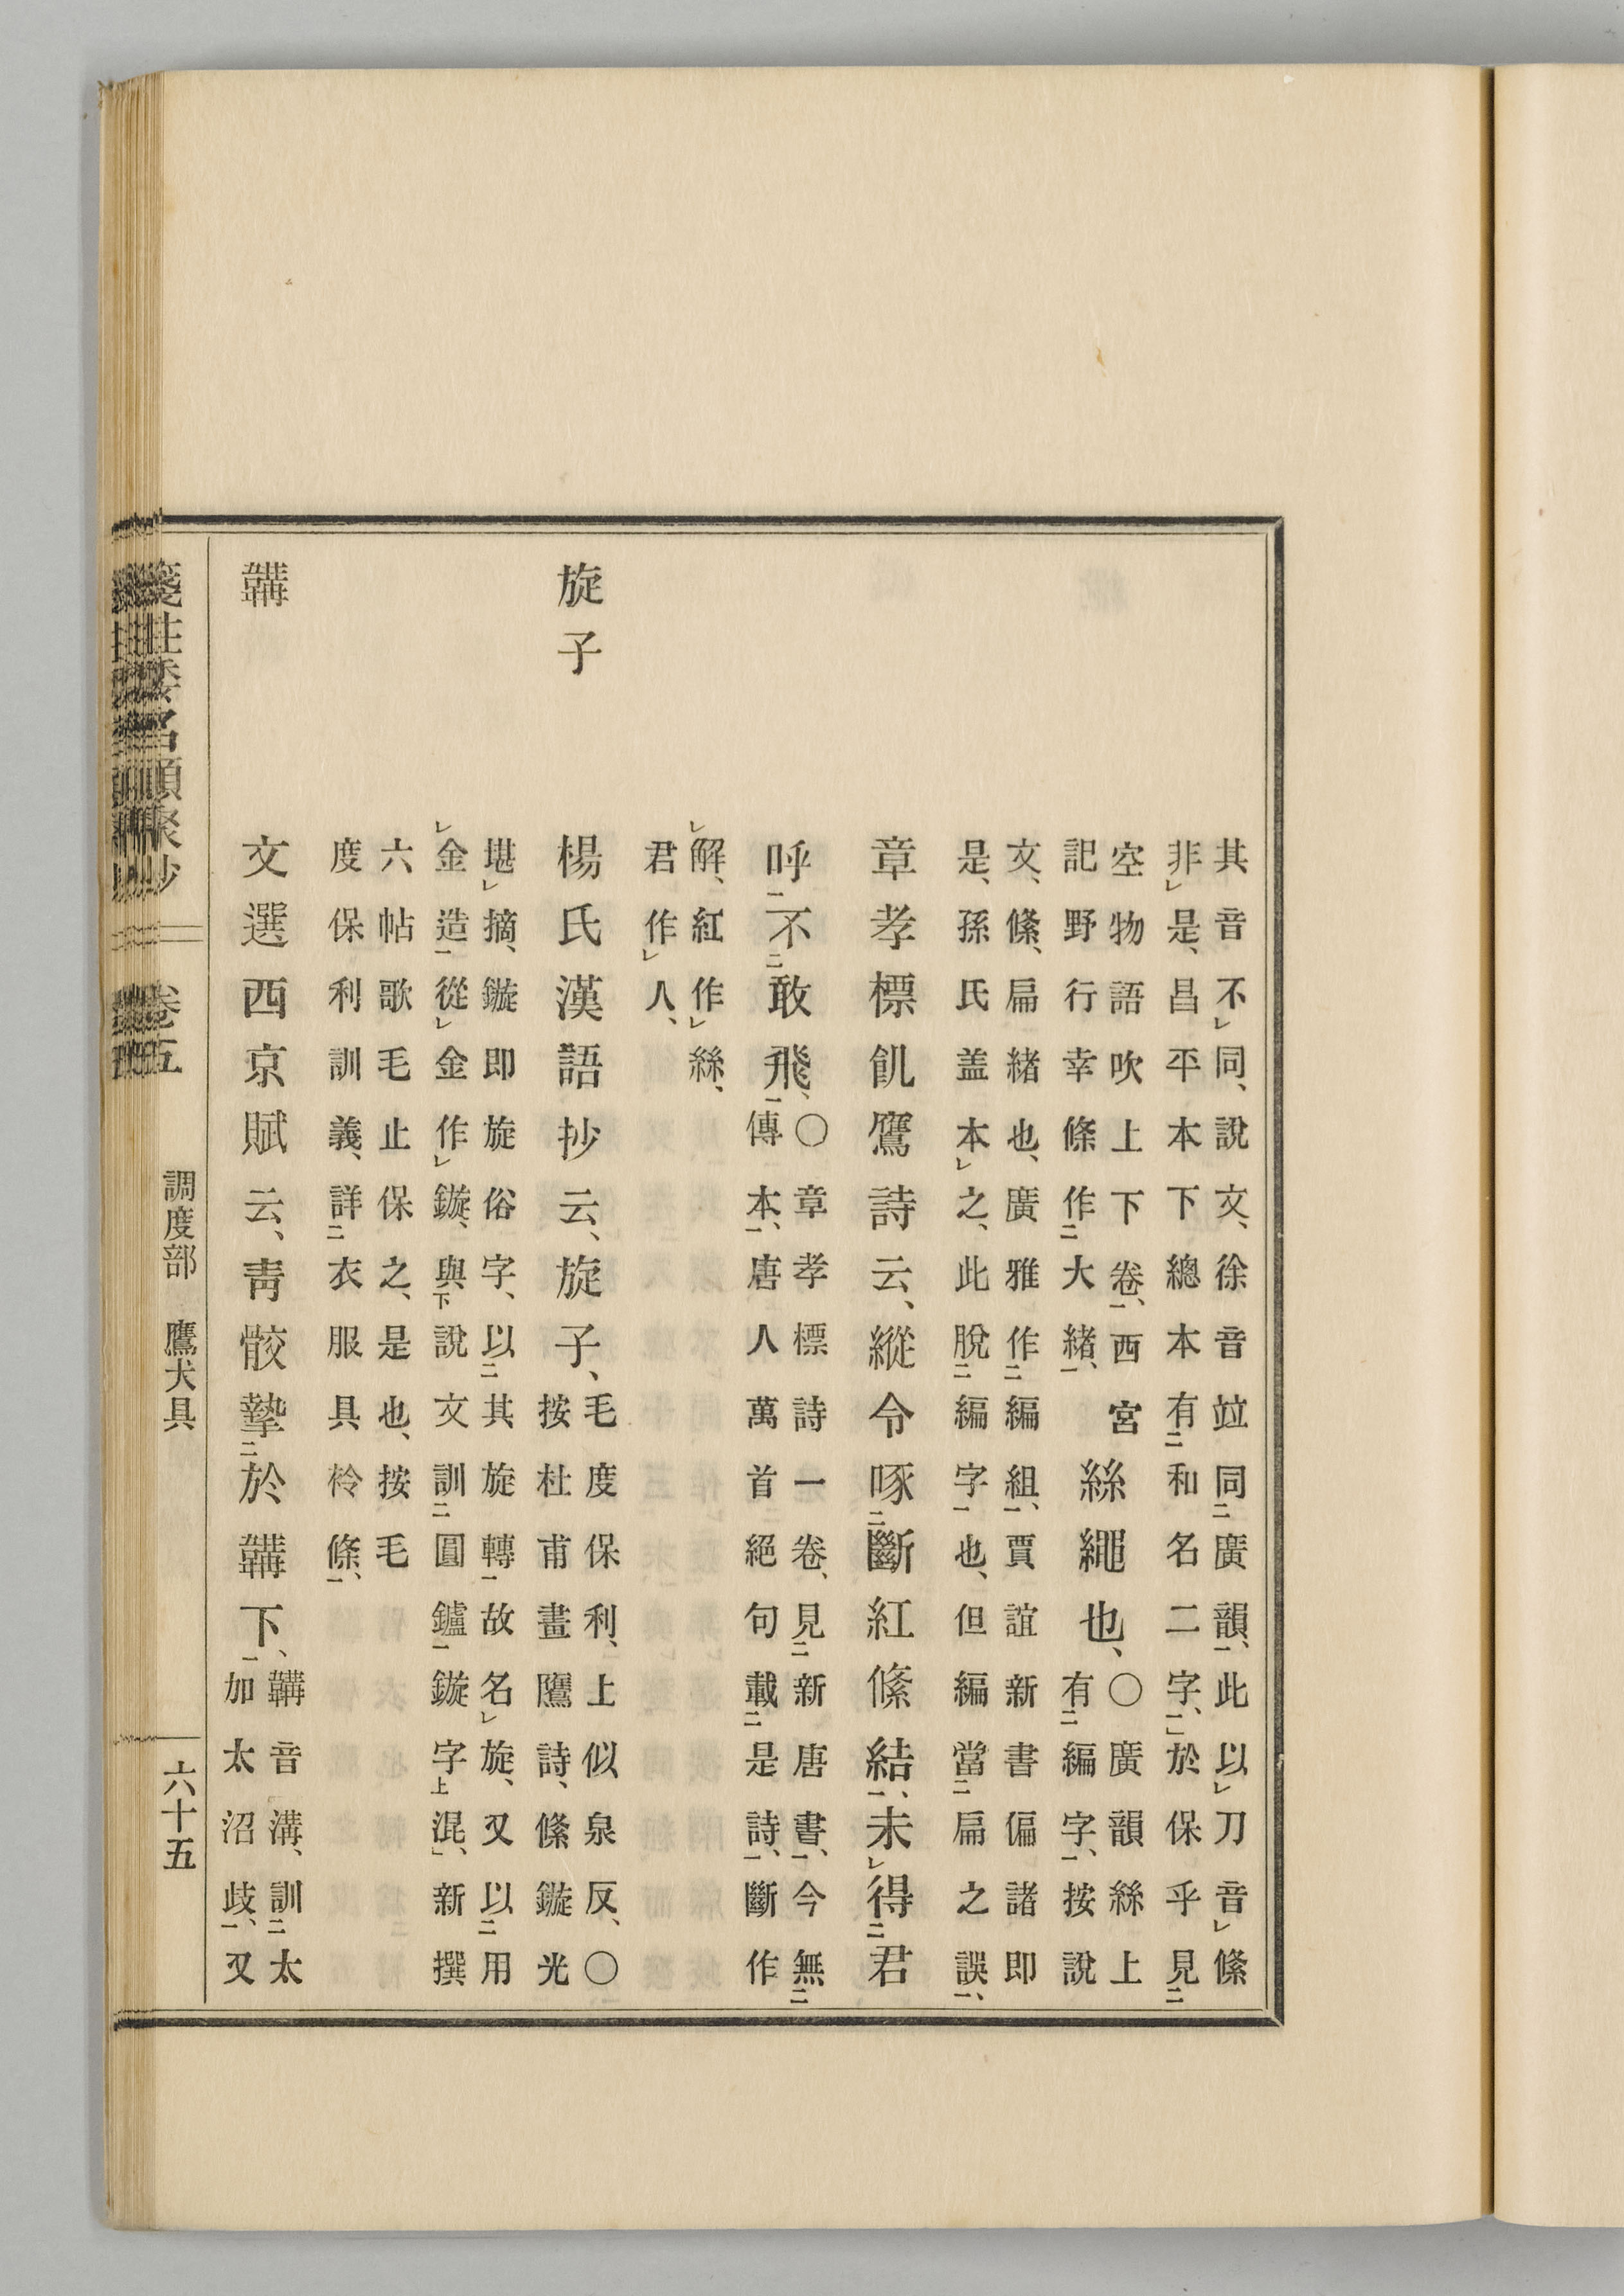 其音不同、說文、徐音竝同廣韻、此以刀音絛
非是、昌平本下總本有和名二字、」於保乎見
空物語吹上下卷、西宮
記野行幸條作大緖、
絲繩也、
○廣韻絲上
有編字、按說
文、絛、扁緖也、廣雅作編組、賈誼新書偏諸即
是、孫氏盖本之、此脫編字也、但編當扁之誤、
章孝標飢鷹詩云、縱令啄斷紅絛結、未得君
呼不敢飛、
○章孝標詩一卷、見新唐書、今無
傳本、唐人萬首絕句載是詩、斷作
解、紅作絲、
君作人、
旋子　楊氏漢語抄云、旋子、
毛度保利、上似泉反、○
按杜甫畫鷹詩、絛鏇光
堪摘、鏇即旋俗字、以其旋轉故名旋、又以用
金造從金作鏇、與說文訓圓鑪鏇字混、」新撰
六帖歌毛止保之、是也、按毛
度保利訓義、詳衣服具袊條、
韝　文選西京賦云、靑骹摯於韝下、
韝音溝、訓太
加太沼歧、又
箋注倭名類聚抄　卷五　調度部　鷹犬具　六十五